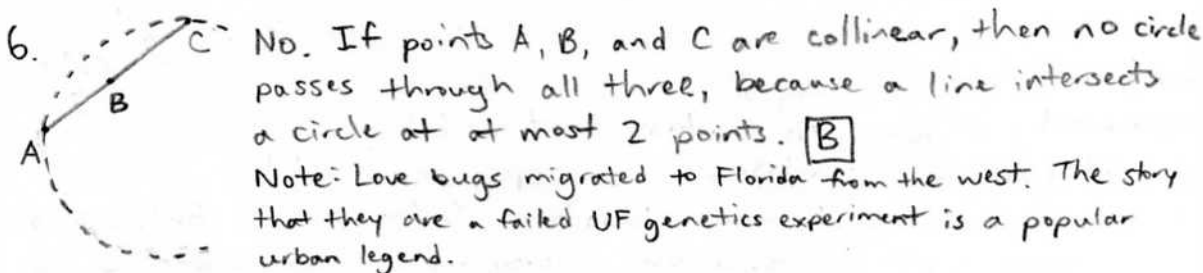 6.
C
B
A
No. If points A, B, and C are collinear, then no circle
passes through all three, because a line intersects
a circle at at most 2 points. B
Note: Love bugs migrated to Florida from the west. The story
that they are a failed UF genetics experiment is a popular
urban legend.